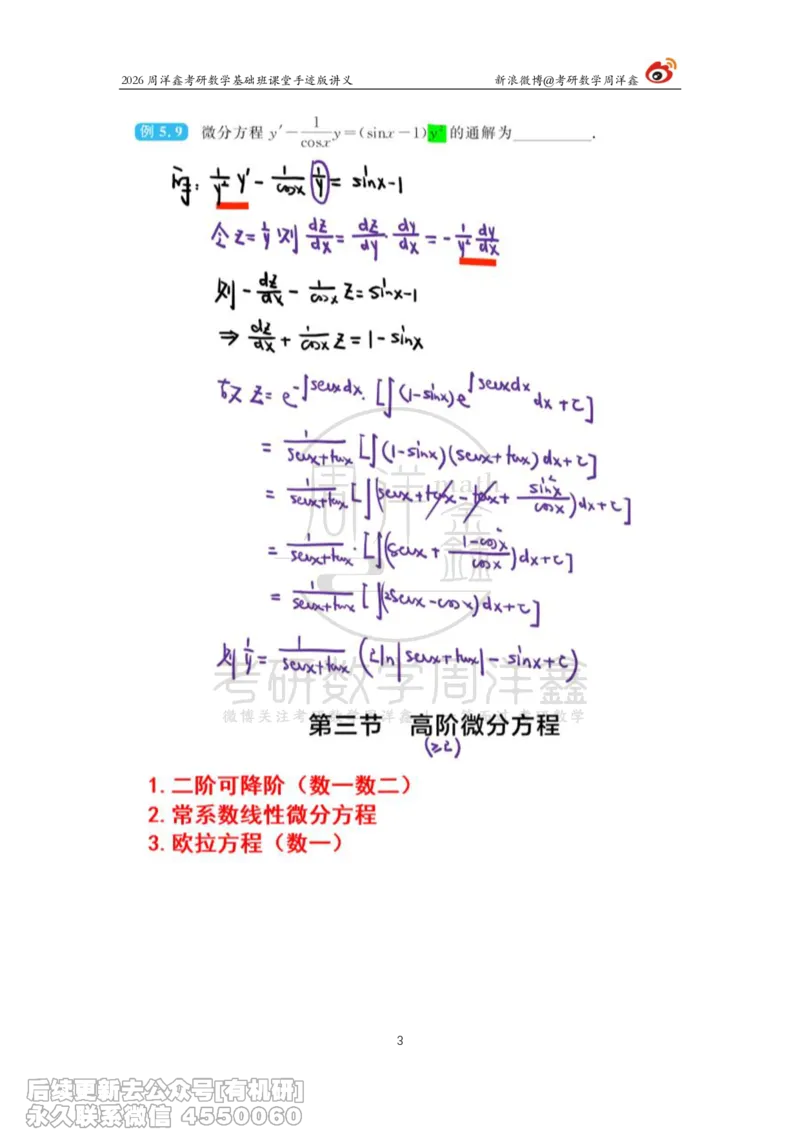 2026 周洋鑫考研数学基础班课堂手迹版讲义 新浪微博@考研数学周洋鑫
例 5.9 微分方程 y′－1/cosx y＝(sinx－1)y²的通解为________．
1/y² y′ - 1/cosx 1/y = sinx-1
令 z=1/y 则 dz/dx = dz/dy · dy/dx = - 1/y² dy/dx
则 - dz/dx - 1/cosx z = sinx-1
⇒ dz/dx + 1/cosx z = 1 - sinx
故 z = e^{-∫secxdx}·[∫(1-sinx)e^{∫secxdx}dx + C]
= 1/(secx+tanx) [∫(1-sinx)(secx+tanx)dx+C]
= 1/(secx+tanx) [∫(secx+tanx-tanx+ sin²x/cosx)dx+C]
= 1/(secx+tanx)·[∫(secx + (1-cos²x)/cosx)dx+C]
= 1/(secx+tanx) [∫(2secx-cosx)dx+C]
则 1/y = 1/(secx+tanx) (2ln|secx+tanx| - sinx+C)
周洋鑫
math
考研数学周洋鑫
第三节 高阶微分方程
(≥2)
1. 二阶可降阶（数一数二）
2. 常系数线性微分方程
3. 欧拉方程（数一）
3
后续更新去公众号[有机研]
永久联系微信 4550060